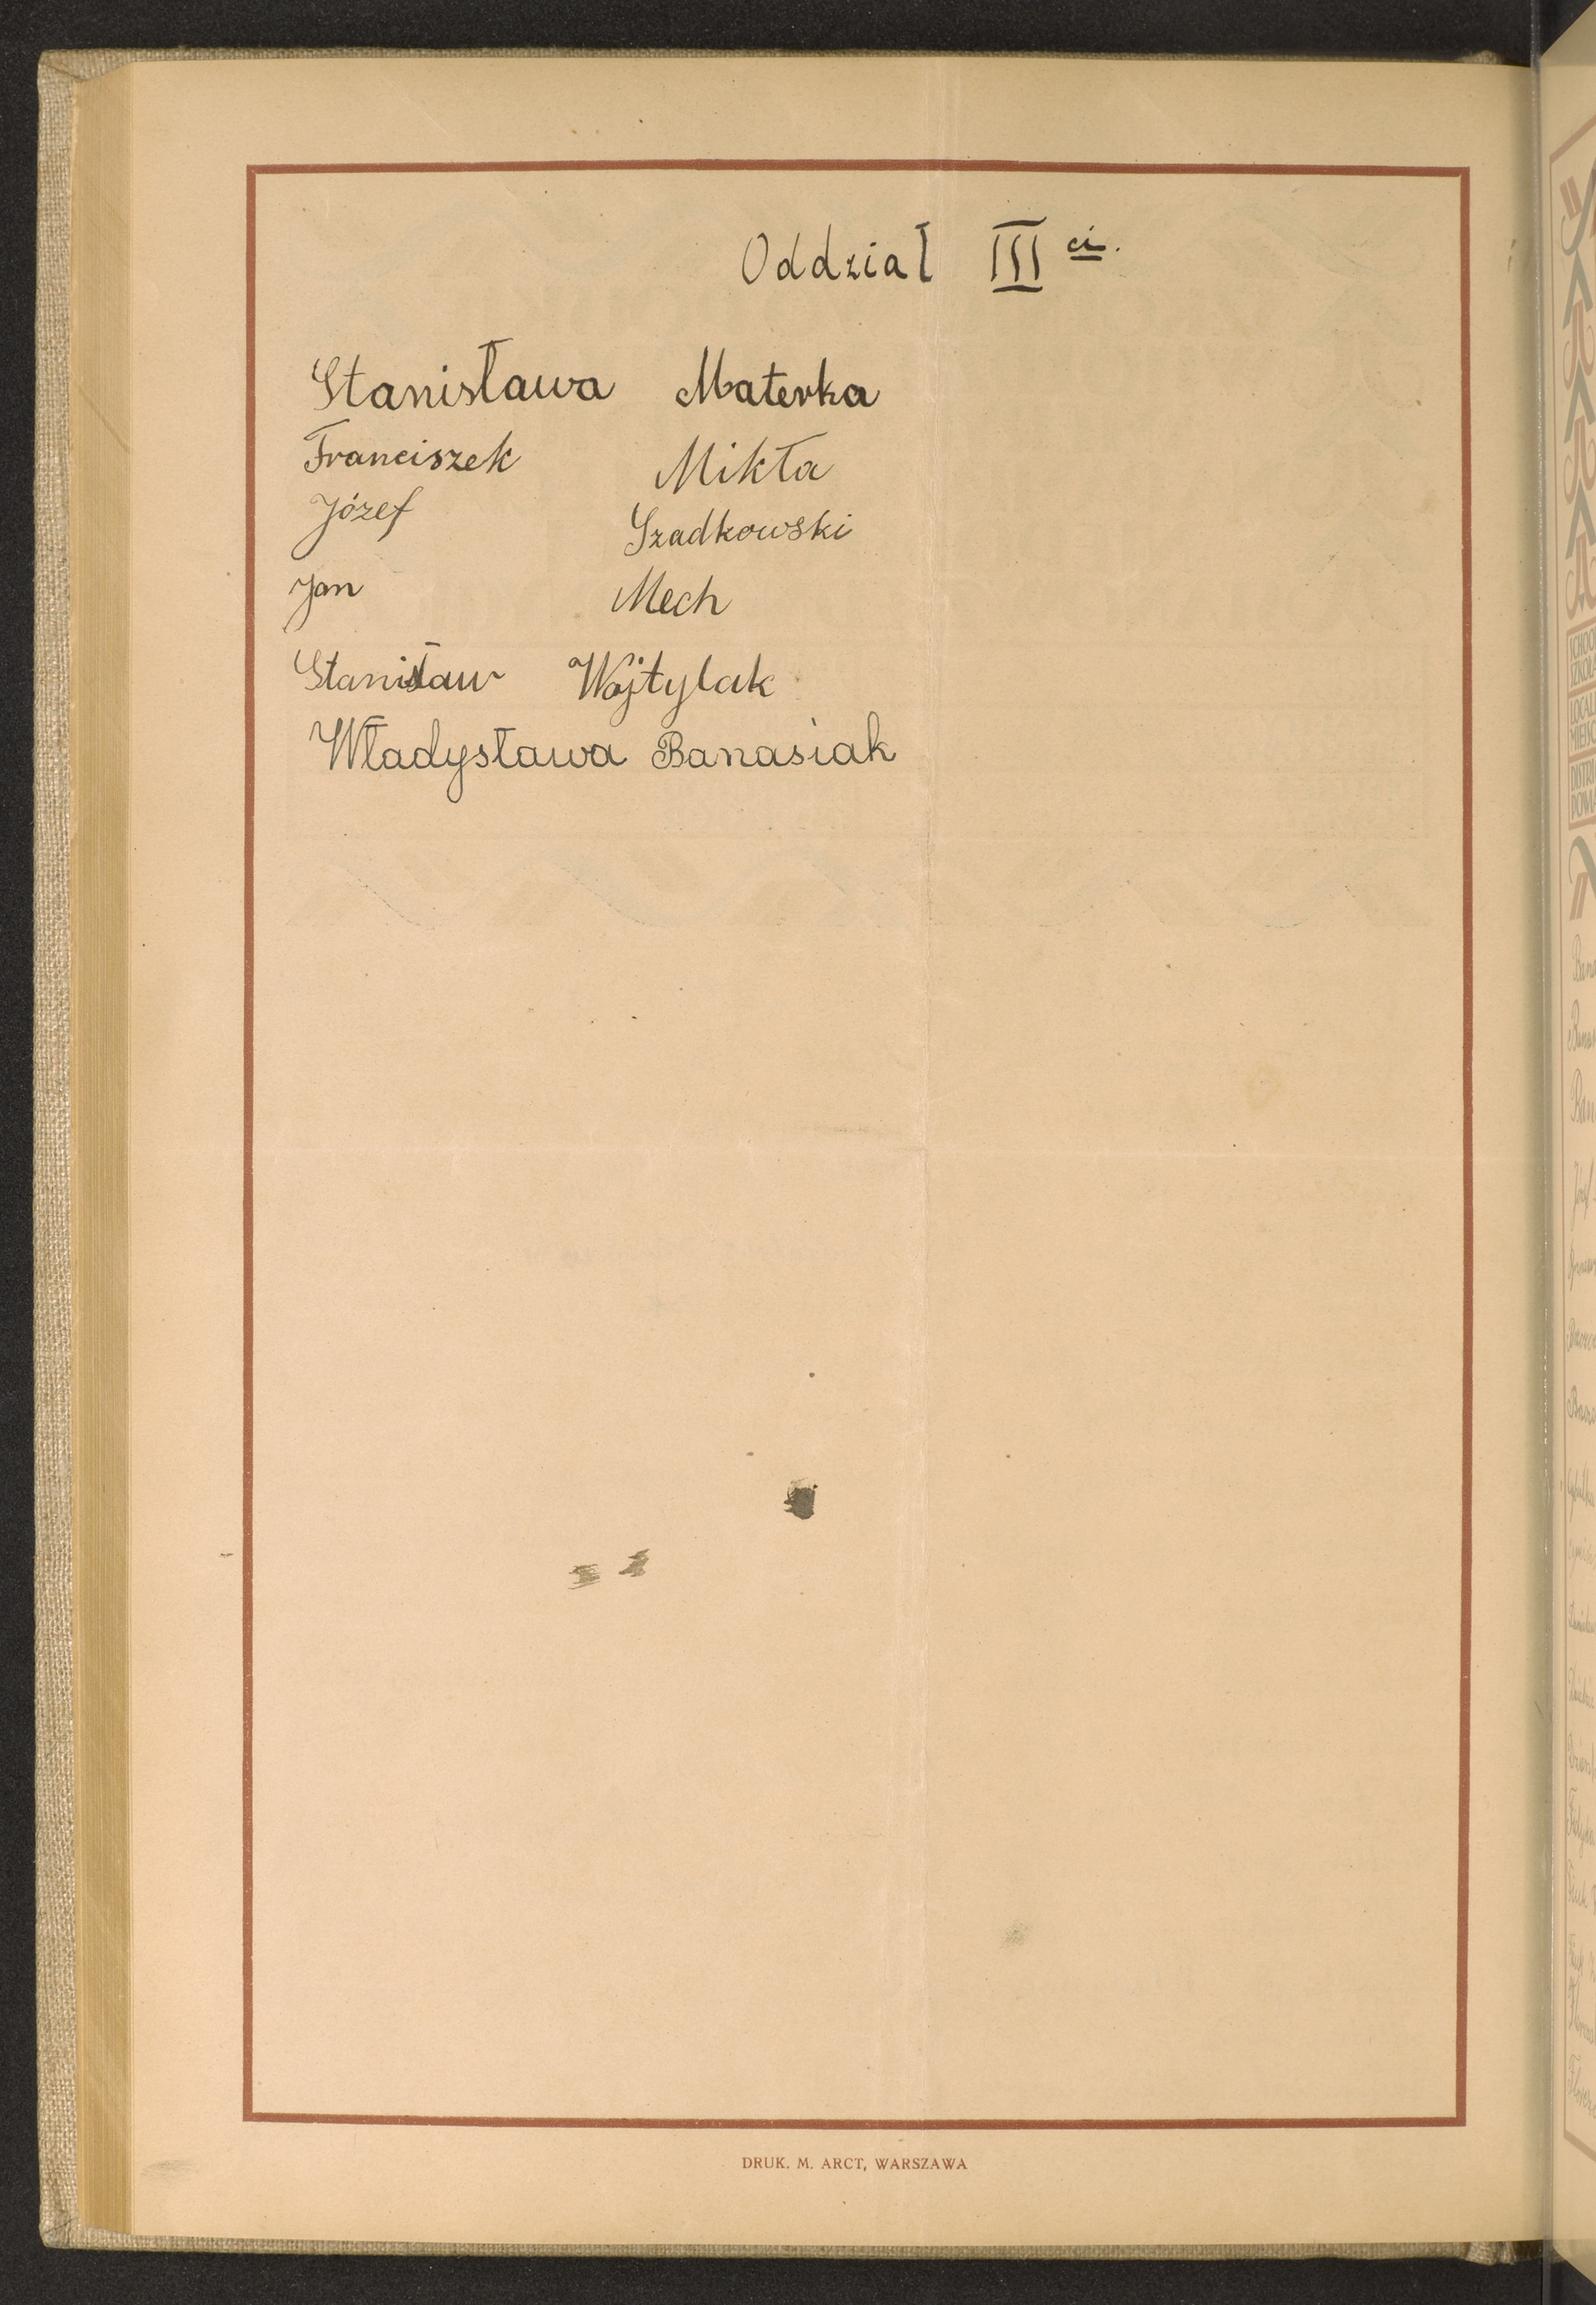 Oddział III ci.
Stanisława Materka
Franciszek Mikła
Józef Szadkowski
Jan Mech
Stanisław Wojtylak
Władysława Banasiak
DRUK. M. ARCT, WARSZAWA